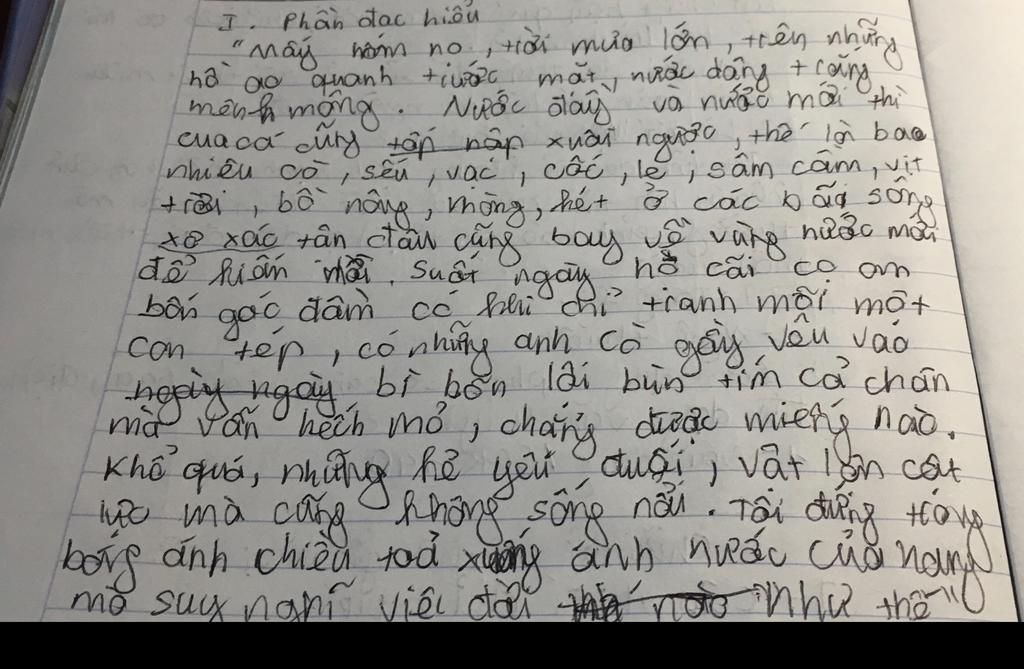 I. Phần đọc hiểu
"Mấy hôm no, trời mưa lớn, trên những
hồ ao quanh trước mắt, nước dâng trắng
mênh mông. Nước đầy và nước mới thì
cua cá cũng tấp nập xuôi ngược, thế là bao
nhiêu cò, sếu, vạc, cốc, le, sâm cầm, vịt
trời, bồ nông, mòng, két ở các bãi sông
xơ xác tận đâu cũng bay về vùng nước mới
để kiếm mồi. Suốt ngày họ cãi cọ om
bốn góc đầm có khi chỉ tranh mồi một
con tép, có những anh cò gầy vêu vao
ngày ngày bì bõm lội bùn tím cả chân
mà vẫn hếch mỏ, chẳng được miếng nào.
Khổ quá, những kẻ yếu đuối, vật lộn cật
lực mà cũng không sống nổi. Tôi đứng trong
bóng ánh chiều toả xuống ánh nước của hang
mà suy nghĩ việc đời như thế"